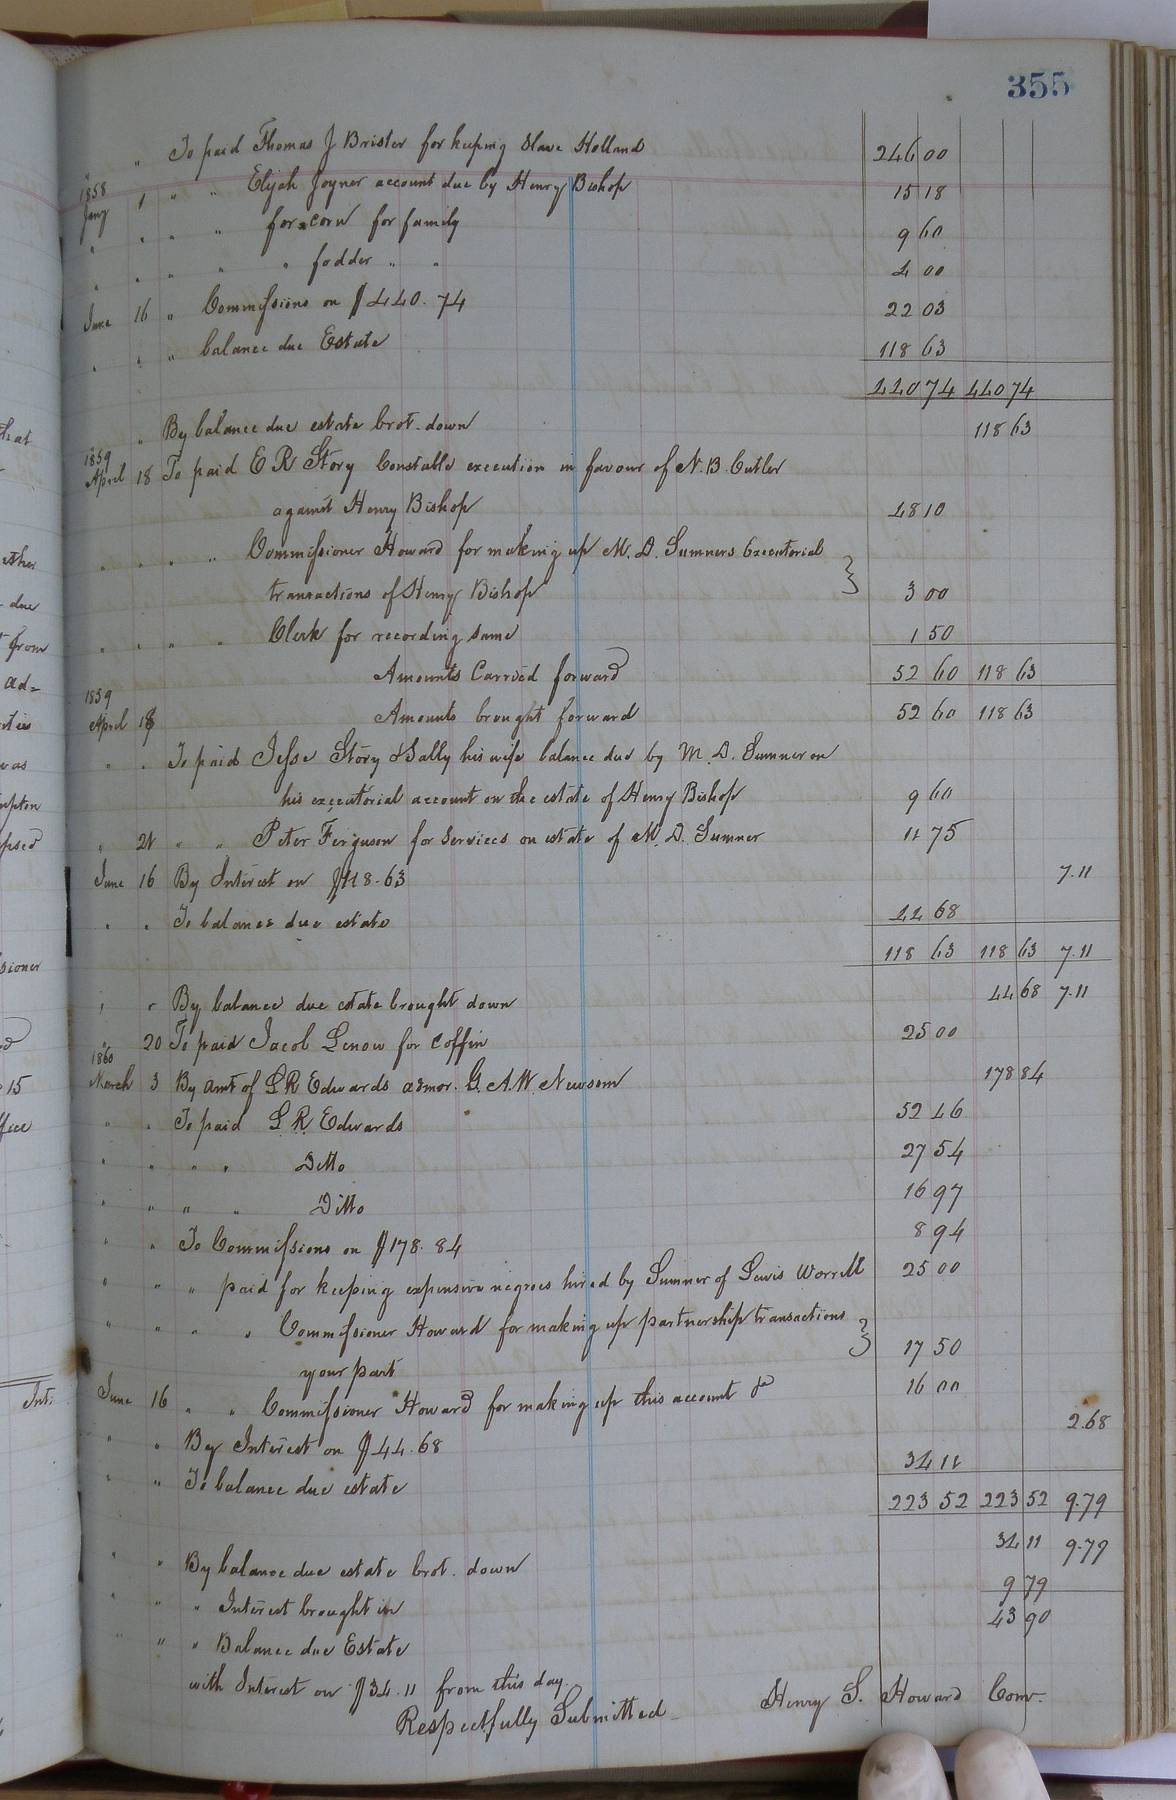 355
" To paid Thomas J Brister for keeping Slave Holland 246 00
1858
Jany 1 " " Elijah Joyner account due by Henry Bishop 15 18
" " " " for corn for family 9 60
" " " " " fodder " " 4 00
June 16 " Commissions on $440.74 22 03
" " " balance due Estate 118 63
440 74 440 74
" By balance due estate brot. down 118 63
1859
April 18 To paid E R Story Constable execution in favour of N. B. Cutler
against Henry Bishop 48 10
" " " " Commissioner Howard for making up M. D. Sumners Executorial }
transactions of Henry Bishop 3 00
" " " " Clerk for recording same 1 50
Amounts Carried forward 52 60 118 63
1859
April 18 Amounts brought forward 52 60 118 63
" " To paid Jesse Story & Sally his wife balance due by M. D. Sumner on
his executorial account on the estate of Henry Bishop 9 60
" 21 " " Peter Ferguson for Services on estate of M. D. Sumner 11 75
June 16 By Interest on $118.63 7.11
" " To balance due estate 44 68
118 63 118 63 7.11
" " By balance due estate brought down 44 68 7.11
" 20 To paid Jacob Lenow for coffin 25 00
1860
March 3 By amt of L R Edwards admor. G. A. W. Newsom 178 84
" " To paid L. R. Edwards 52 46
" " " " Ditto 27 54
" " " " Ditto 16 97
" " To Commissions on $178.84 8 94
" " " paid for keeping expensive negroes hired by Sumner of Lewis Worrell 25 00
" " " " Commissioner Howard for making up partnership transactions }
your part 17 50
June 16 " " Commissioner Howard for making up this account & 16 00
" " By Interest on $44.68 2.68
" " To balance due estate 34 11
223 52 223 52 9.79
" " By balance due estate brot. down 34 11 9.79
" " " Interest brought in 9 79
" " " Balance due Estate 43 90
with Interest on $34.11 from this day.
Respectfully Submitted Henry S. Howard Com.